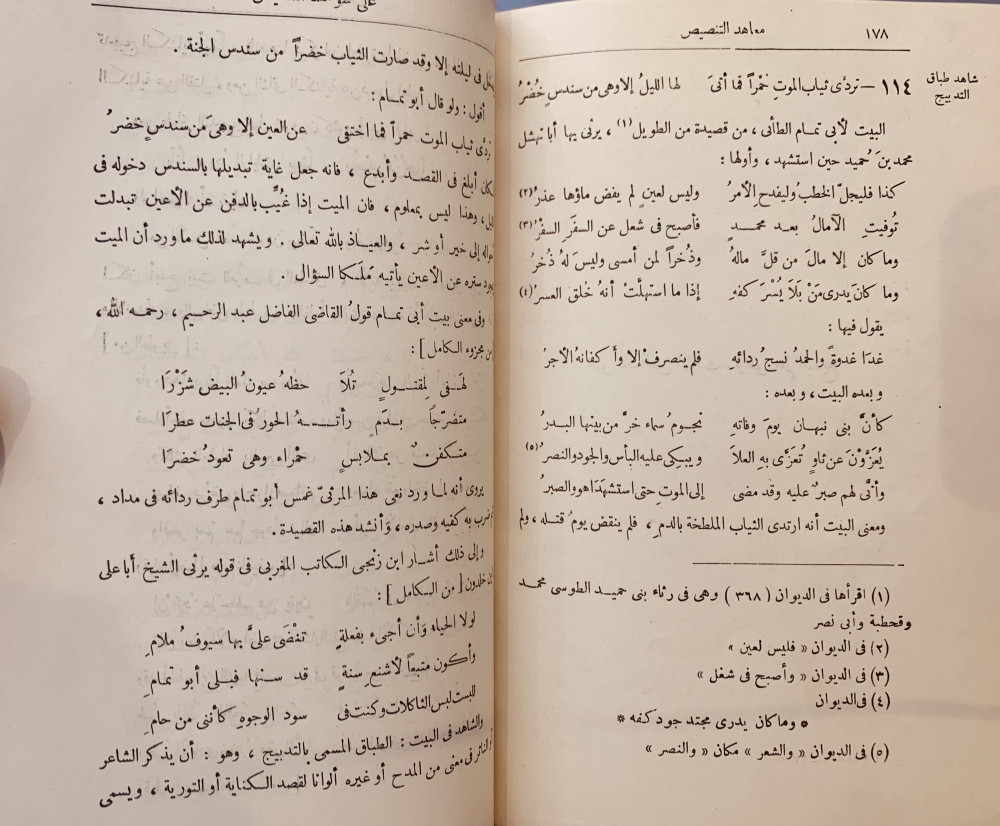 ١٧٨
معاهد التنصيص
شاهد طباق
التدبيج
١١٤ — تردَّى ثيابَ الموتِ حُمْراً فما أتىَ    لها الليلُ إلا وهى من سندسٍ خُضْرُ
البيت لأبى تمام الطائى ، من قصيدة من الطويل (١) ، يرثى بها أبا نهشل
محمد بنَ حُميد حين استشهد ، وأولها :
كذا فليجلَّ الخطبُ وليفدحِ الأمرُ    وليس لعينٍ لم يفض ماؤها عذرُ (٢)
تُوفيتِ الآمالُ بعد محمدٍ    فأصبح فى شغل عن السفَرِ السفْرُ (٣)
وما كان إلا مالَ من قلَّ مالهُ    وذُخراً لمن أمسى وليسَ لهُ ذُخرُ
وما كانَ يدرى مَنْ بَلاَ يُسْرَ كفهِ    إذا ما استهلَّتْ أنهُ خُلق العسرُ (٤)
يقول فيها :
غدَا غدوةً والحمدُ نسجُ ردائهِ    فلم ينصرفْ إلا وأكفانهُ الأجرُ
وبعده البيت ، وبعده :
كأنَّ بنى نبهان يومَ وفاتهِ    نجومُ سماء خرَّ من بينها البدرُ
يُعَزَّوْنَ عن ثاوٍ تُعَزَّى بهِ العلاَ    ويبكى عليه البأس والجود والنصرُ (٥)
وأنَّى لهم صبرٌ عليه وقد مضى    إلى الموتِ حتى استشهدَا هو والصبرُ
ومعنى البيت أنه ارتدى الثياب الملطخة بالدم ، فلم ينقض يومُ قتله ، ولم
(١) اقرأها فى الديوان ( ٣٦٨ ) وهى فى رثاء بنى حميد الطوسى محمد
وقحطبة وأبى نصر
(٢) فى الديوان « فليس لعين »
(٣) فى الديوان « وأصبح فى شغل »
(٤) فى الديوان
* وما كان يدرى مجتد جود كفه *
(٥) فى الديوان « والشعر » مكان « والنصر »
فى ليلته إلا وقد صارت الثياب خضراً من سندس الجنة .
أقول : ولو قال أبو تمام :
تردَّى ثياب الموت حمراً فما اختفى    عن العين إلا وهىَ من سندسٍ خضرُ
لكان أبلغ فى القصد وأبدع ، فانه جعل غاية تبديلها بالسندس دخوله فى
الليل ، وهذا ليس بمعلوم ، فان الميت إذا غُيِّب بالدفن عن الأعين تبدلت
أحواله إلى خير أو شر ، والعياذ بالله تعالى . ويشهد لذلك ما ورد أن الميت
بمجرد ستره عن الأعين يأتيه مَلَكا السؤال .
وفى معنى بيت أبى تمام قولُ القاضى الفاضل عبد الرحيم ، رحمه الله ،
[ من مجزوء الكامل ] :
لهَفى لمِقتولٍ تُلاَ    حظه عيونُ البيض شَزْرَا
متضرّجاً بدَمٍ رأتْهُ    الحورُ فى الجنات عطرَا
متكفنٌ بملابسٍ    حمْراء وهى تعودُ خضرَا
يروى أنه لما ورد نعى هذا المرثىّ غمس أبو تمام طرف ردائه فى مداد ،
ثم ضرب به كفيه وصدره ، وَأنشد هذه القصيدة .
وإلى ذلك أشار ابن زنجى الكاتب المغربى فى قوله يرثى الشيخ أبا على
ابن خلدون [ من الكامل ] :
لولا الحياه وَأن أجىء بفعلةٍ    تنْضَى علىَّ بها سيوفُ ملامِ
وأكون متبعاً لأشنع سنةٍ    قد سنها قبلى أبو تمامِ
للبست لبس الثاكلات وكنت فى    سود الوجوهِ كأننى من حامِ
والشاهد فى البيت : الطباق المسمى بالتدبيج ، وهو : أن يذكر الشاعر
أو الناثر فى معنى من المدح أو غيره ألوانا لقصد الكناية أو التورية ، ويسمى